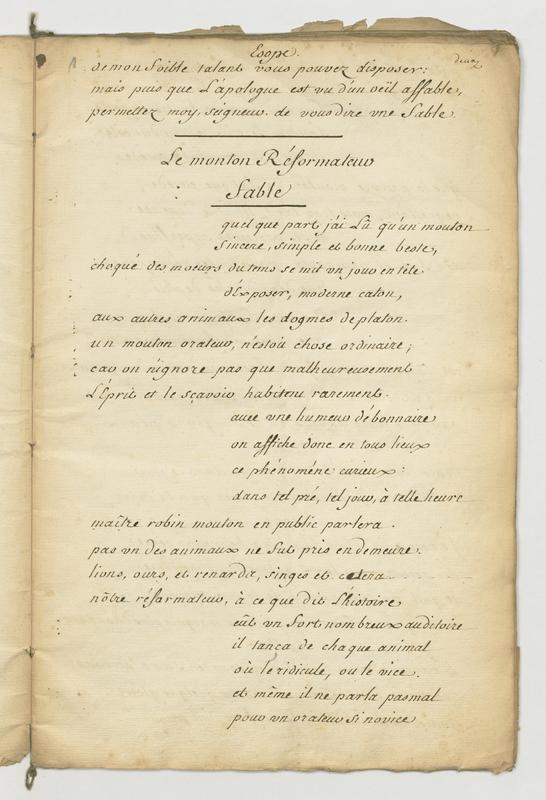 Esope.
deux
de mon foible talant vous pouvez disposer:
mais puis que L'apologue est vu d'un oëil affable,
permettez moy, seigneur de vous dire vne fable.
Le mouton Réformateur
fable
quelque part j'ai Lû qu'un mouton
sincere, simple et bonne beste,
choqué des moeurs du tems se mit vn jour en tête
d'Exposer, moderne caton,
aux autres animaux les dogmes de platon.
un mouton orateur, n'estoit chose ordinaire;
car on n'ignore pas que malheureusement
L'Esprit et le sçavoir habitent rarement.
auec vne humeur débonnaire
on affiche donc en tous lieux
ce phénoméne curieux:
dans tel pré, tel jour, à telle heure
maître robin mouton en public parlera.
pas vn des animaux ne fut pris en demeure.
lions, ours, et renards, singes et cetera
nôtre réformateur, à ce que dit L'histoire
eût vn fort nombreux auditoire
il tança de chaque animal
où le ridicule, ou le vice.
et même il ne parla pas mal
pour vn orateur si novice